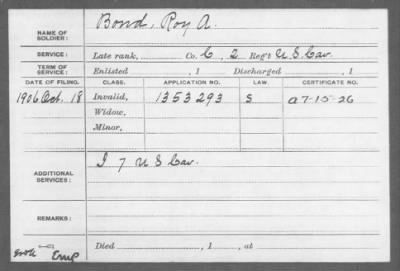 NAME OF SOLDIER: Bond, Roy A.
SERVICE: Late rank, Co. C, 2 Reg't U S Cav.
TERM OF SERVICE: Enlisted , 1 Discharged , 1
DATE OF FILING. CLASS. APPLICATION NO. LAW. CERTIFICATE NO.
1906 Oct. 18 Invalid, 1353293 S a 7-15-26
Widow,
Minor,
ADDITIONAL SERVICES: I 7 U S Cav.
REMARKS:
Died , 1 , at